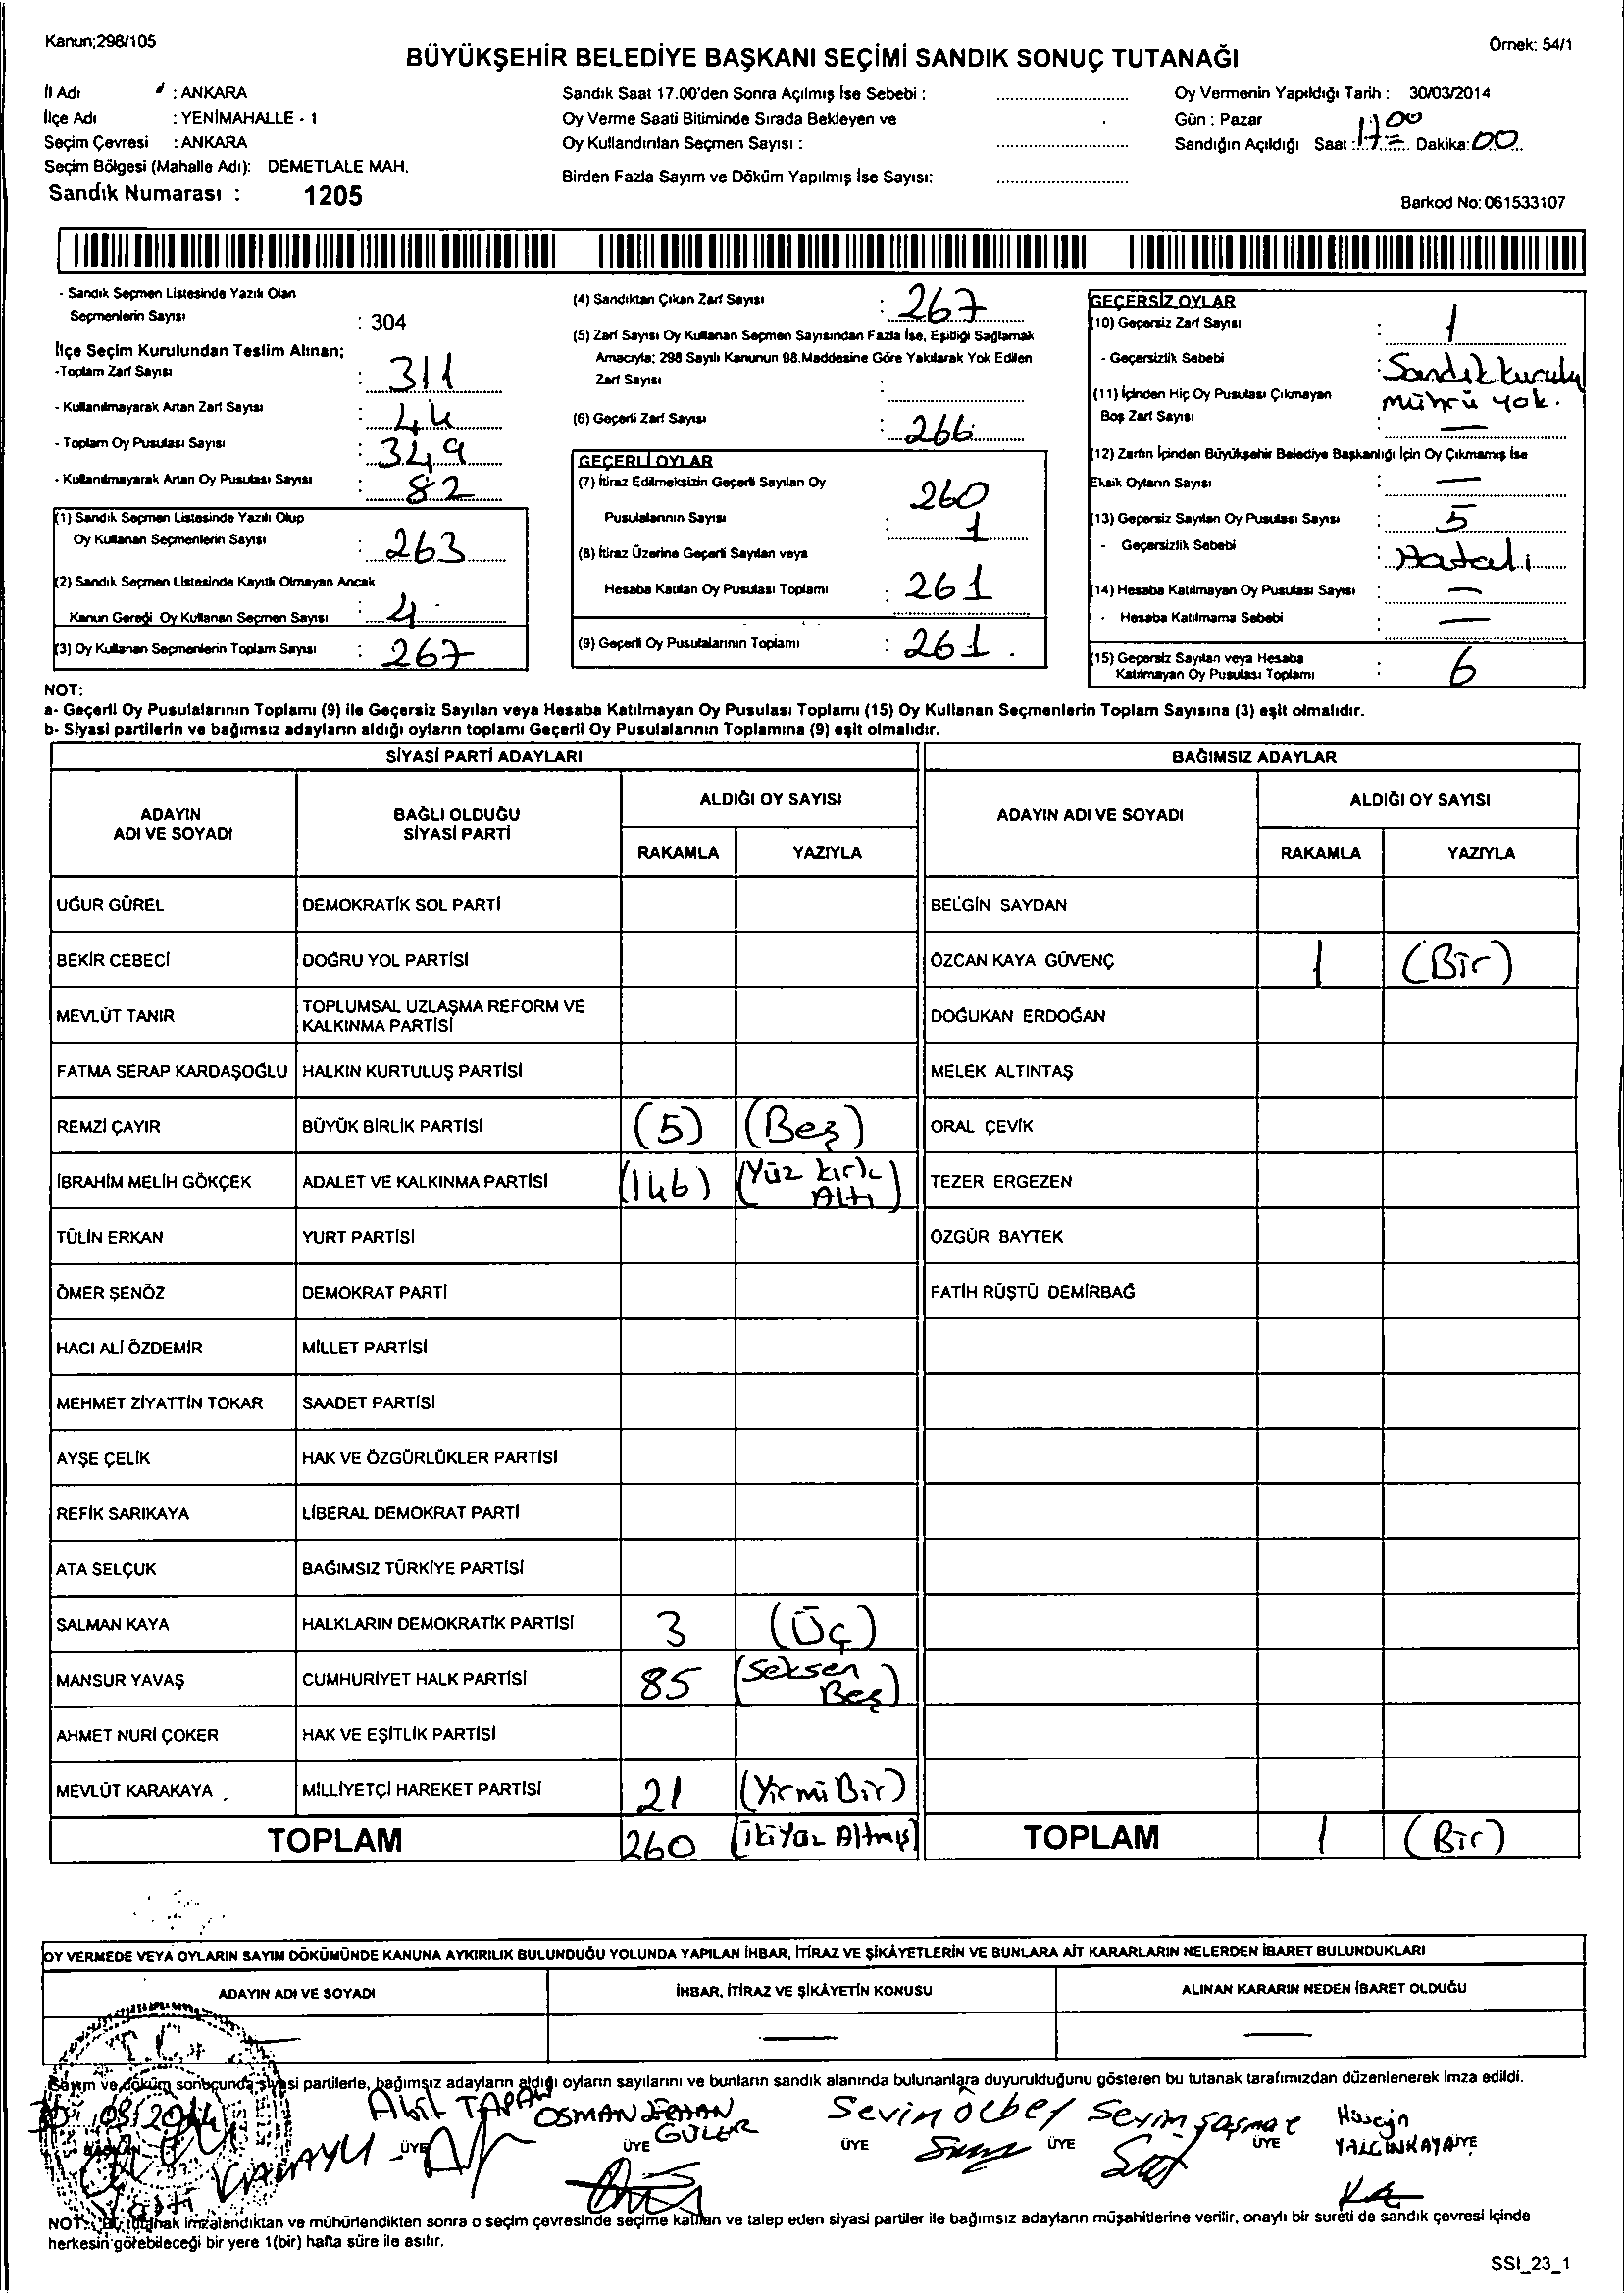 Kanun;298/105
Örnek: 54/1
BÜYÜKŞEHİR BELEDİYE BAŞKANI SEÇİMİ SANDIK SONUÇ TUTANAĞI
İl Adı : ANKARA
İlçe Adı : YENİMAHALLE - 1
Seçim Çevresi : ANKARA
Seçim Bölgesi (Mahalle Adı): DEMETLALE MAH.
Sandık Numarası : 1205
Sandık Saat 17.00'den Sonra Açılmış İse Sebebi :
Oy Verme Saati Bitiminde Sırada Bekleyen ve
Oy Kullandırılan Seçmen Sayısı :
Birden Fazla Sayım ve Döküm Yapılmış İse Sayısı:
Oy Vermenin Yapıldığı Tarih : 30/03/2014
Gün : Pazar
Sandığın Açıldığı Saat : 17 00 Dakika: 00
Barkod No: 061533107
- Sandık Seçmen Listesinde Yazılı Olan
Seçmenlerin Sayısı : 304
İlçe Seçim Kurulundan Teslim Alınan;
-Toplam Zarf Sayısı : 311
- Kullanılmayarak Artan Zarf Sayısı : 44
- Toplam Oy Pusulası Sayısı : 349
- Kullanılmayarak Artan Oy Pusulası Sayısı : 82
(1) Sandık Seçmen Listesinde Yazılı Olup
Oy Kullanan Seçmenlerin Sayısı : 263
(2) Sandık Seçmen Listesinde Kayıtlı Olmayan Ancak
Kanun Gereği Oy Kullanan Seçmen Sayısı : 4
(3) Oy Kullanan Seçmenlerin Toplam Sayısı : 267
(4) Sandıktan Çıkan Zarf Sayısı : 267
(5) Zarf Sayısı Oy Kullanan Seçmen Sayısından Fazla İse, Eşitliği Sağlamak
Amacıyla; 298 Sayılı Kanunun 98.Maddesine Göre Yakılarak Yok Edilen
Zarf Sayısı :
(6) Geçerli Zarf Sayısı : 266
GEÇERLİ OYLAR
(7) İtiraz Edilmeksizin Geçerli Sayılan Oy 260
Pusulalarının Sayısı : 1
(8) İtiraz Üzerine Geçerli Sayılan veya
Hesaba Katılan Oy Pusulası Toplamı : 261
(9) Geçerli Oy Pusulalarının Toplamı : 261.
GEÇERSİZ OYLAR
(10) Geçersiz Zarf Sayısı : 1
- Geçersizlik Sebebi : Sandık kurulu
(11) İçinden Hiç Oy Pusulası Çıkmayan mührü yok.
Boş Zarf Sayısı : —
(12) Zarfın İçinden Büyükşehir Belediye Başkanlığı İçin Oy Çıkmamış İse
Eksik Oyların Sayısı : —
(13) Geçersiz Sayılan Oy Pusulası Sayısı : 5
- Geçersizlik Sebebi : Hatalı
(14) Hesaba Katılmayan Oy Pusulası Sayısı : —
- Hesaba Katılmama Sebebi : —
(15) Geçersiz Sayılan veya Hesaba
Katılmayan Oy Pusulası Toplamı : 6
NOT:
a- Geçerli Oy Pusulalarının Toplamı (9) ile Geçersiz Sayılan veya Hesaba Katılmayan Oy Pusulası Toplamı (15) Oy Kullanan Seçmenlerin Toplam Sayısına (3) eşit olmalıdır.
b- Siyasi partilerin ve bağımsız adayların aldığı oyların toplamı Geçerli Oy Pusulalarının Toplamına (9) eşit olmalıdır.
SİYASİ PARTİ ADAYLARI BAĞIMSIZ ADAYLAR
ADAYIN ADI VE SOYADI BAĞLI OLDUĞU SİYASİ PARTİ ALDIĞI OY SAYISI ADAYIN ADI VE SOYADI ALDIĞI OY SAYISI
RAKAMLA YAZIYLA RAKAMLA YAZIYLA
UĞUR GÜREL DEMOKRATİK SOL PARTİ BELGİN SAYDAN
BEKİR CEBECİ DOĞRU YOL PARTİSİ ÖZCAN KAYA GÜVENÇ 1 (Bir)
MEVLÜT TANIR TOPLUMSAL UZLAŞMA REFORM VE KALKINMA PARTİSİ DOĞUKAN ERDOĞAN
FATMA SERAP KARDAŞOĞLU HALKIN KURTULUŞ PARTİSİ MELEK ALTINTAŞ
REMZİ ÇAYIR BÜYÜK BİRLİK PARTİSİ (5) (Beş) ORAL ÇEVİK
İBRAHİM MELİH GÖKÇEK ADALET VE KALKINMA PARTİSİ (146) (Yüz kırk Altı) TEZER ERGEZEN
TÜLİN ERKAN YURT PARTİSİ ÖZGÜR BAYTEK
ÖMER ŞENÖZ DEMOKRAT PARTİ FATİH RÜŞTÜ DEMİRBAĞ
HACI ALİ ÖZDEMİR MİLLET PARTİSİ
MEHMET ZİYATTİN TOKAR SAADET PARTİSİ
AYŞE ÇELİK HAK VE ÖZGÜRLÜKLER PARTİSİ
REFİK SARIKAYA LİBERAL DEMOKRAT PARTİ
ATA SELÇUK BAĞIMSIZ TÜRKİYE PARTİSİ
SALMAN KAYA HALKLARIN DEMOKRATİK PARTİSİ 3 (Üç)
MANSUR YAVAŞ CUMHURİYET HALK PARTİSİ 85 (Seksen Beş)
AHMET NURİ ÇOKER HAK VE EŞİTLİK PARTİSİ
MEVLÜT KARAKAYA MİLLİYETÇİ HAREKET PARTİSİ 21 (Yirmi Bir)
TOPLAM 260 (İkiyüz Altmış) TOPLAM 1 (Bir)
OY VERMEDE VEYA OYLARIN SAYIM DÖKÜMÜNDE KANUNA AYKIRILIK BULUNDUĞU YOLUNDA YAPILAN İHBAR, İTİRAZ VE ŞİKÂYETLERİN VE BUNLARA AİT KARARLARIN NELERDEN İBARET BULUNDUKLARI
ADAYIN ADI VE SOYADI İHBAR, İTİRAZ VE ŞİKÂYETİN KONUSU ALINAN KARARIN NEDEN İBARET OLDUĞU
— — —
T.C.
Sayım ve döküm sonucunda siyasi partilerle, bağımsız adayların aldığı oyların sayılarını ve bunların sandık alanında bulunanlara duyurulduğunu gösteren bu tutanak tarafımızdan düzenlenerek imza edildi.
30/03/2014
Akil TAPAN OSMAN GÜLER Sevin Serim Hüseyin YALÇINKAYA
BAŞKAN ÜYE ÜYE ÜYE ÜYE ÜYE ÜYE
NOT: Bu tutanak imzalandıktan ve mühürlendikten sonra o seçim çevresinde seçime katılan ve talep eden siyasi partiler ile bağımsız adayların müşahitlerine verilir, onaylı bir sureti de sandık çevresi içinde
herkesin görebileceği bir yere 1(bir) hafta süre ile asılır.
SSI_23_1